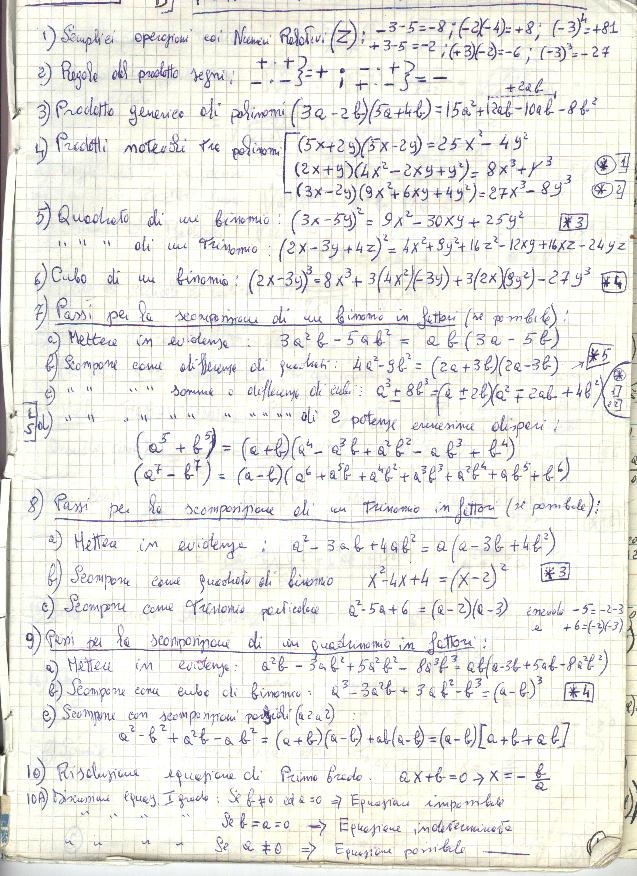 1) Semplici operazioni coi Numeri Relativi (Z): -3-5=-8; (-2)(-4)=+8; (-3)⁴=+81
+3-5=-2; (+3)(-2)=-6; (-3)³=-27
2) Regola del prodotto segni: + · + - · - } = + ; - · + + · - } = -
+2ab
3) Prodotto generico di polinomi (3a-2b)(5a+4b)=15a²+12ab-10ab-8b²
4) Prodotti notevoli tra polinomi (5x+2y)(5x-2y)=25x²-4y²
(2x+y)(4x²-2xy+y²)=8x³+y³ *1
(3x-2y)(9x²+6xy+4y²)=27x³-8y³ *2
5) Quadrato di un binomio: (3x-5y)²=9x²-30xy+25y² *3
" " " di un trinomio: (2x-3y+4z)²=4x²+9y²+16z²-12xy+16xz-24yz
6) Cubo di un binomio: (2x-3y)³=8x³+3(4x²)(-3y)+3(2x)(9y²)-27y³ *4
7) Passi per la scomposizione di un binomio in fattori (se possibile):
a) Mettere in evidenza: 3a²b-5ab²= ab(3a-5b)
b) Scomporre come differenza di quadrati: 4a²-9b²=(2a+3b)(2a-3b) → *5
c) " " " " somma o differenza di cubi: a³±8b³=(a±2b)(a²∓2ab+4b²)
d) " " " " " " " " di 2 potenze ennesime dispari:
(a⁵+b⁵)=(a+b)(a⁴-a³b+a²b²-ab³+b⁴)
(a⁷-b⁷)=(a-b)(a⁶+a⁵b+a⁴b²+a³b³+a²b⁴+ab⁵+b⁶)
8) Passi per la scomposizione di un trinomio in fattori (se possibile):
a) Mettere in evidenza: a²-3ab+4ab²=a(a-3b+4b²)
b) Scomporre come quadrato di binomio x²-4x+4=(x-2)² *3
c) Scomporre come trinomio particolare a²-5a+6=(a-2)(a-3) essendo -5=-2-3
e +6=(-2)(-3)
9) Passi per la scomposizione di un quadrinomio in fattori:
a) Mettere in evidenza: a²b-3ab²+5a²b²-8a³b³=ab(a-3b+5ab-8a²b²)
b) Scomporre come cubo di binomio: a³-3a²b+3ab²-b³=(a-b)³ *4
c) Scomporre con scomposizioni parziali (a 2 a 2):
a²-b²+a²b-ab²=(a+b)(a-b)+ab(a-b)=(a-b)[a+b+ab]
10) Risoluzione equazione di Primo Grado. ax+b=0 → x=-b/a
10A) Discussione equaz. I grado: Se b≠0 ed a=0 ⇒ Equazione impossibile
" " " " Se b=a=0 ⇒ Equazione indeterminata
" " " " Se a≠0 ⇒ Equazione possibile